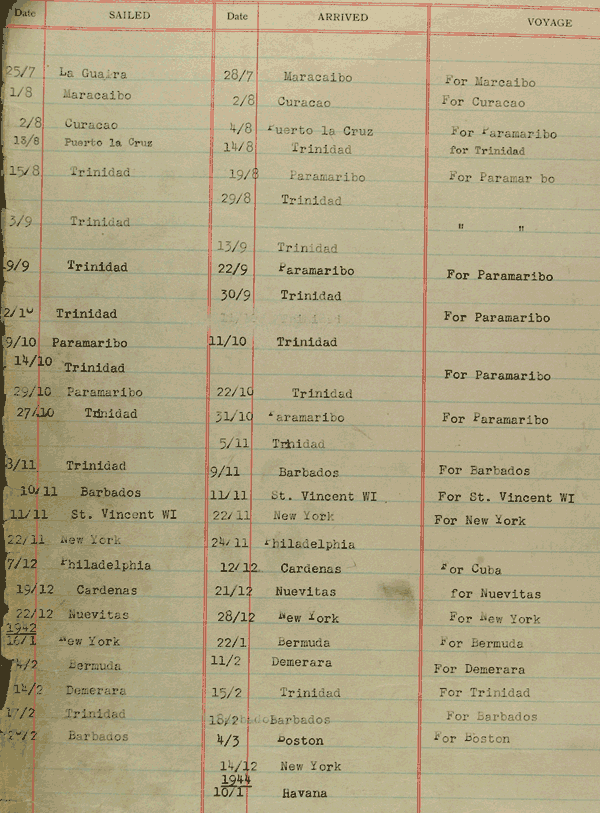 Date SAILED Date ARRIVED VOYAGE
25/7 La Guaira 28/7 Maracaibo For Marcaibo
1/8 Maracaibo 2/8 Curacao For Curacao
2/8 Curacao 4/8 Puerto la Cruz For Paramaribo
13/8 Puerto la Cruz 14/8 Trinidad for Trinidad
15/8 Trinidad 19/8 Paramaribo For Paramar bo
29/8 Trinidad
3/9 Trinidad " "
13/9 Trinidad
9/9 Trinidad 22/9 Paramaribo For Paramaribo
30/9 Trinidad
2/10 Trinidad For Paramaribo
9/10 Paramaribo 11/10 Trinidad
14/10 Trinidad For Paramaribo
29/10 Paramaribo 22/10 Trinidad
27/10 Trinidad 31/10 Paramaribo For Paramaribo
5/11 Trinidad
8/11 Trinidad 9/11 Barbados For Barbados
10/11 Barbados 11/11 St. Vincent WI For St. Vincent WI
11/11 St. Vincent WI 22/11 New York For New York
22/11 New York 24/11 Philadelphia
7/12 Philadelphia 12/12 Cardenas For Cuba
19/12 Cardenas 21/12 Nuevitas for Nuevitas
22/12 Nuevitas 28/12 New York For New York
1942
16/1 New York 22/1 Bermuda For Bermuda
4/2 Bermuda 11/2 Demerara For Demerara
14/2 Demerara 15/2 Trinidad For Trinidad
17/2 Trinidad 18/2 Barbados For Barbados
Barbados 4/3 Boston For Boston
14/12 New York
1944
10/1 Havana